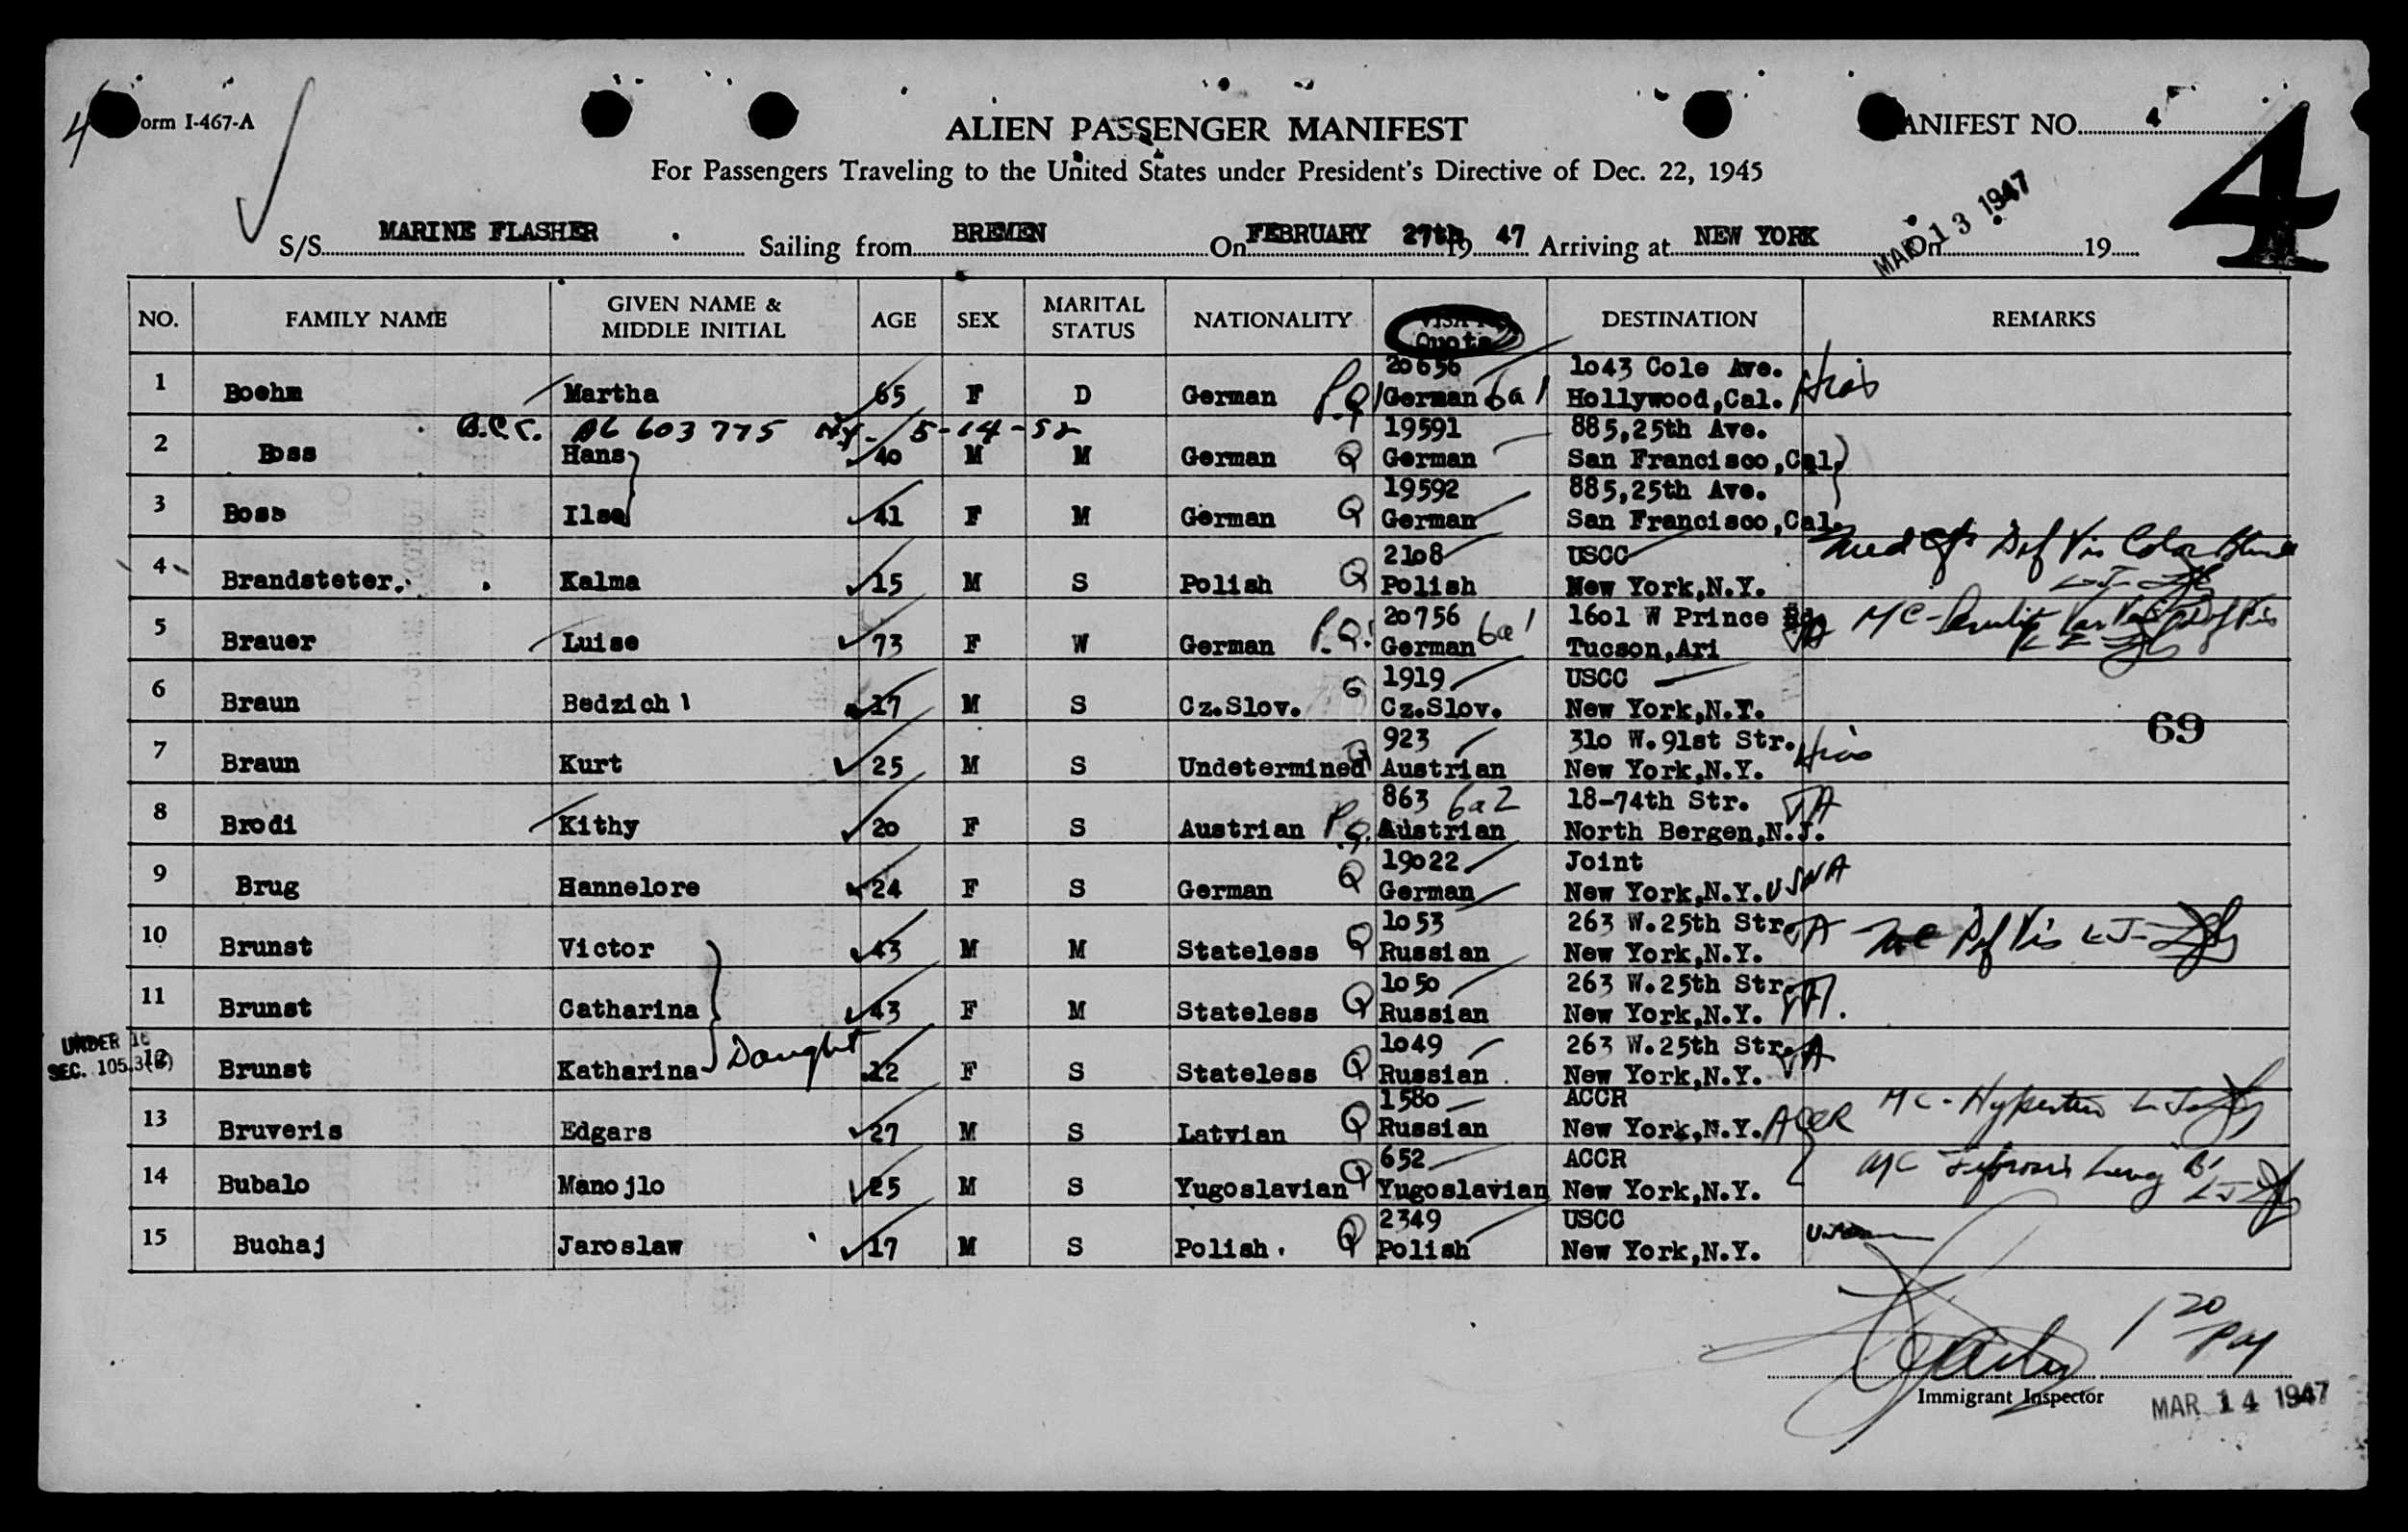 4
Form I-467-A
ALIEN PASSENGER MANIFEST
MANIFEST NO. 4
4
For Passengers Traveling to the United States under President's Directive of Dec. 22, 1945
MAR 13 1947
S/S MARINE FLASHER Sailing from BREMEN On FEBRUARY 27th 19 47 Arriving at NEW YORK On 19
NO. FAMILY NAME GIVEN NAME & MIDDLE INITIAL AGE SEX MARITAL STATUS NATIONALITY Quota DESTINATION REMARKS
20656 1043 Cole Ave.
1 Boehm Martha 65 F D German P.Q. German 6a1 Hollywood,Cal. Hias
603775 5-14-52 19591 885,25th Ave.
2 Boss Hans 40 M M German Q German San Francisco,Cal.
19592 885,25th Ave.
3 Boss Ilse 41 F M German Q German San Francisco,Cal.
2108 USCC Def Vis Color Blind
4 Brandsteter. Kalma 15 M S Polish Q Polish New York,N.Y.
20756 1601 W Prince Rd. MC-
5 Brauer Luise 73 F W German P.Q. German 6a1 Tucson,Ari
1919 USCC
6 Braun Bedzich 17 M S Cz.Slov. Q Cz.Slov. New York,N.Y.
69
923 310 W.91st Str.
7 Braun Kurt 25 M S Undetermined Q Austrian New York,N.Y. Hias
863 6a2 18-74th Str.
8 Brodi Kithy 20 F S Austrian P.Q. Austrian North Bergen,N.J.
19022 Joint
9 Brug Hannelore 24 F S German Q German New York,N.Y. USNA
1053 263 W.25th Str.
10 Brunst Victor 43 M M Stateless Q Russian New York,N.Y. Def Vis
1050 263 W.25th Str.
11 Brunst Catharina 43 F M Stateless Q Russian New York,N.Y.
UNDER 16
SEC. 105.3
1049 263 W.25th Str.
12 Brunst Katharina Daught 12 F S Stateless Q Russian New York,N.Y.
1580 ACCR
13 Bruveris Edgars 27 M S Latvian Q Russian New York,N.Y. ACCR MC-
652 ACCR
14 Bubalo Manojlo 25 M S Yugoslavian Q Yugoslavian New York,N.Y.
2349 USCC
15 Buchaj Jaroslaw 17 M S Polish. Q Polish New York,N.Y.
1 20 PM
Immigrant Inspector
MAR 14 1947